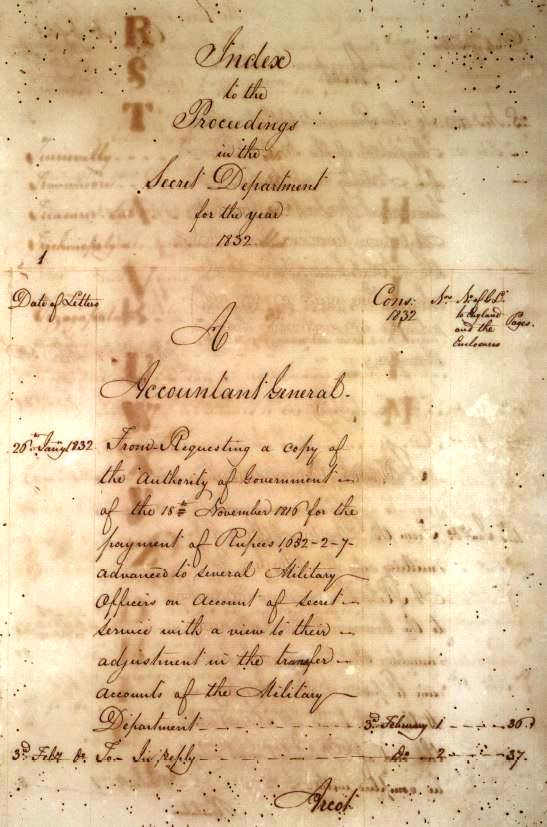 R
S
T
Index
to the
Proceedings
in the
Secret Department
for the year
1832.
1
Date of Letters
Cons: 1832
Nos.
No. of C. Lr. to England and the Enclosures
Pages.
A
Accountant General.
20th Jany. 1832. From-Requesting a copy of
the Authority of Government
of the 18th November 1816 for the
payment of Rupees 1,632-2-7
advanced to several Military
Officers on account of secret
service with a view to their
adjustment in the transfer
accounts of the Military
Department 3d. February 1 36.
3d Feby. do. To- In reply do. 2 37.
Arcot